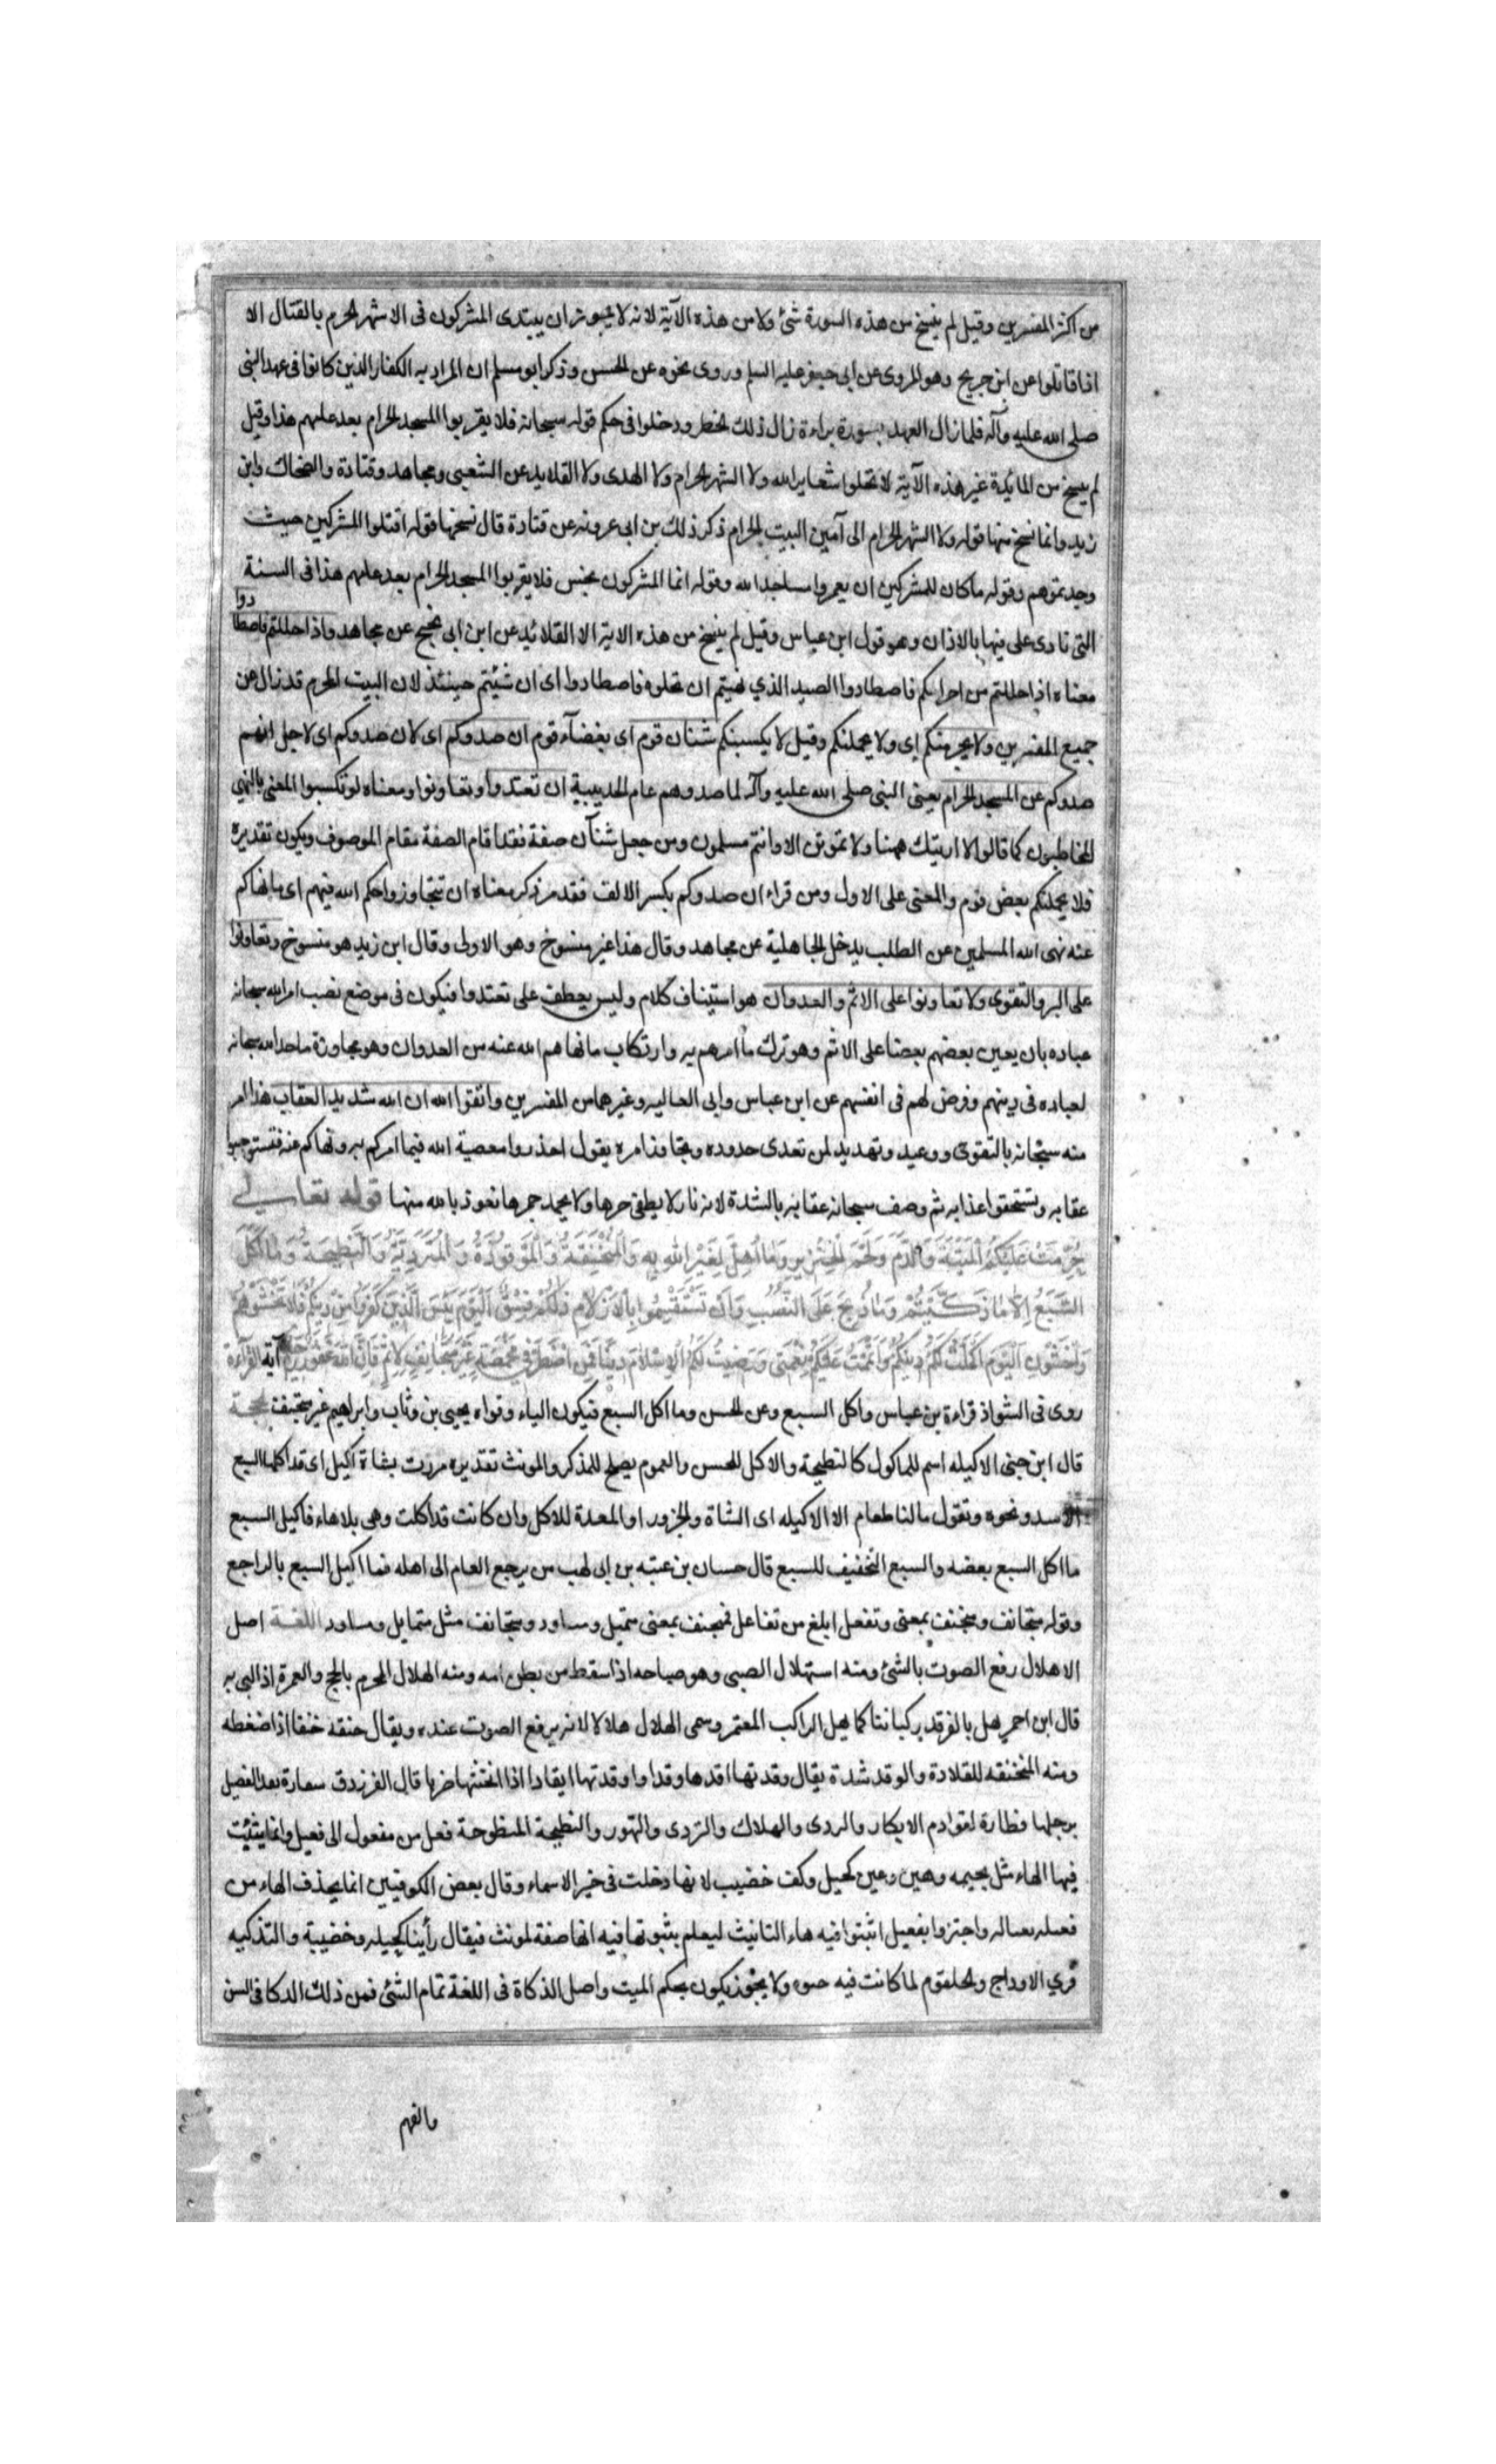 من اكثر المفسرين وقيل لم ينسخ من هذه السورة شئ ولا من هذه الآية لانه لا يجوز ان يبتدى المشركون فى الاشهر الحرم بالقتال الا
اذا قاتلوا عن ابن جريج وهو المروى عن ابى جعفر عليه السلم وروى نحوه عن الحسن وذكر ابو مسلم ان المراد به الكفار الذين كانوا فى عهد النبى
صلى الله عليه وآله فلما زال العهد بسورة براءة زال ذلك الحظر ودخلوا فى حكم قوله سبحانه فلا يقربوا المسجد الحرام بعد عامهم هذا وقيل
لم ينسخ من المائدة غير هذه الآية لا تحلوا شعاير الله ولا الشهر الحرام ولا الهدى ولا القلايد عن الشعبى ومجاهد وقتادة والضحاك وابن
زيد وانما نسخ منها قوله ولا الشهر الحرام الى آمين البيت الحرام ذكر ذلك بن ابى عروبه عن قتادة قال نسخها قوله اقتلوا المشركين حيث
وجدتموهم وقوله ما كان للمشركين ان يعمروا مساجد الله وقوله انما المشركون نجس فلا يقربوا المسجد الحرام بعد عامهم هذا فى السنة
التى نادى على فيها بالاذان وهو قول ابن عباس وقيل لم ينسخ من هذه الاية الا القلائد عن ابن ابى نجيح عن مجاهد واذا حللتم فاصطادوا
معناه اذا حللتم من احرامكم فاصطادوا الصيد الذي نهيتم ان تحلوه فاصطادوا اى ان شئتم حينئذ لان البيت الحرم قد زال عن
جميع المفسرين ولا يجرمنكم اى ولا يحملنكم وقيل لا يكسبنكم شنان قوم اى بغضآء قوم ان صدوكم اى لان صدوكم اى لاجل انهم
صدوكم عن المسجد الحرام يعنى النبى صلى الله عليه وآله لما صدوهم عام الحديبية ان تعتدوا وتعاونوا ومعناه لو تكسبوا المعنى بالنهي
المخاطبون كما قالوا لا اريتك ههنا ولا تموتن الا وانتم مسلمون ومن جعل شنآن صفة فقد اقام الصفة مقام الموصوف ويكون تقديره
فلا يحملنكم بعض قوم والمعنى على الاول ومن قراء ان صدوكم بكسر الالف فقد مر ذكر معناه ان تتجاوزوا حكم الله فيهم اى ما نهاكم
عنه نهى الله المسلمين عن الطلب بدخل الجاهلية عن مجاهد وقال هذا غير منسوخ وهو الاولى وقال ابن زيد هو منسوخ وتعاونوا
على البر والتقوى ولا تعاونوا على الاثم والعدوان هو استيناف كلام وليس بعطف على تعتدوا فيكون فى موضع نصب امر الله سبحانه
عباده بان يعين بعضهم بعضا على الاثم وهو ترك ما امرهم به وارتكاب ما نهاهم الله عنه من العدوان وهو مجاوزة ما حد الله سبحانه
لعباده فى دينهم وفرض لهم فى انفسهم عن ابن عباس وابى العاليه وغيرهما من المفسرين واتقوا الله ان الله شديد العقاب هذا امر
منه سبحانه بالتقوى ووعيد وتهديد لمن تعدى حدوده وتجاوز امره يقول احذروا معصية الله فيما امركم به ونهاكم عنه فتستوجبوا
عقابه وتستحقوا عذابه ثم وصف سبحانه عقابه بالشدة لانه نار لا يطفى حرها ولا يخمد جمرها نعوذ بالله منها قوله تعالى
حُرِّمَتْ عَلَيْكُمُ الْمَيْتَةُ وَالدَّمُ وَلَحْمُ الْخِنْزِيرِ وَمَا أُهِلَّ لِغَيْرِ اللهِ بِهِ وَالْمُنْخَنِقَةُ وَالْمَوْقُوذَةُ وَالْمُتَرَدِّيَةُ وَالنَّطِيحَةُ وَمَا أَكَلَ
السَّبُعُ إِلَّا مَا ذَكَّيْتُمْ وَمَا ذُبِحَ عَلَى النُّصُبِ وَأَنْ تَسْتَقْسِمُوا بِالْأَزْلَامِ ذَلِكُمْ فِسْقٌ الْيَوْمَ يَئِسَ الَّذِينَ كَفَرُوا مِنْ دِينِكُمْ فَلَا تَخْشَوْهُمْ
وَاخْشَوْنِ الْيَوْمَ أَكْمَلْتُ لَكُمْ دِينَكُمْ وَأَتْمَمْتُ عَلَيْكُمْ نِعْمَتِي وَرَضِيتُ لَكُمُ الْإِسْلَامَ دِينًا فَمَنِ اضْطُرَّ فِي مَخْمَصَةٍ غَيْرَ مُتَجَانِفٍ لِإِثْمٍ فَإِنَّ اللهَ غَفُورٌ رَحِيمٌ آية القراءة
روى فى الشواذ قراءة بن عباس واكل السبع وعن الحسن وما اكل السبع فيكون الياء وقراه يحيى بن وثاب وابراهيم غير متجنف الحجة
قال ابن جنى الاكيله اسم للماكول كالنطيحة والاكل للجنس والعموم يصلح للمذكر والمونث تقديره مررت بشاة اكيل اى قد اكلها السبع
الاسد ونحوه وتقول ما لنا طعام الا الاكيله اى الشاة والجزور او المعدة للاكل وان كانت قد اكلت وهى بلا هاء فاكيل السبع
ما اكل السبع بعضه والسبع التخفيف للسبع قال حسان بن عتبه بن ابى لهب من يرجع العام الى اهله فما اكيل السبع بالراجع
وقوله متجانف ومتجنف بمعنى وتفعل ابلغ من تفاعل فمتجنف بمعنى متميل ومساود ومتجانف مثل متمايل ومساود اللغة اصل
الاهلال رفع الصوت بالشئ ومنه استهلال الصبى وهو صياحه اذا سقط من بطن امه ومنه الهلال المحرم بالحج والعمرة اذا لبى به
قال ابن احمر يهل بالفرقد ركباننا كما يهل الراكب المعتمر وسمى الهلال هلالا لانه يرفع الصوت عنده ويقال خنقه خنقا اذا ضغطه
ومنه المخنقه للقلادة والوقد شدة يقال وقدتها اقدها وقدا واوقدتها ايقادا اذا اثخنتها ضربا قال الفرزدق سعارة بعد الفصيل
برجلها فطارة لقوادم الابكار والردى والهلاك والتردى والتهور والنطيحة المنطوحة فعل من مفعول الى فعيل وانما يثبت
فيها الهاء مثل بجيمه وهين وعين كحيل وكف خضيب لانها دخلت فى خير الاسماء وقال بعض الكوفيين انما يحذف الهاء من
فعيله واجتزوا بفعيل اثبتوا فيه هاء التانيث ليعلم بثبوتها فيه انها صفة لمونث فيقال رأينا كحيله وخضيبة والتذكيه
فري الاوداج والحلقوم لما كانت فيه ولا يجوز يكون بحكم الميت واصل الذكاة فى اللغة تمام الشئ فمن ذلك الدكا فى السن
مالفهم